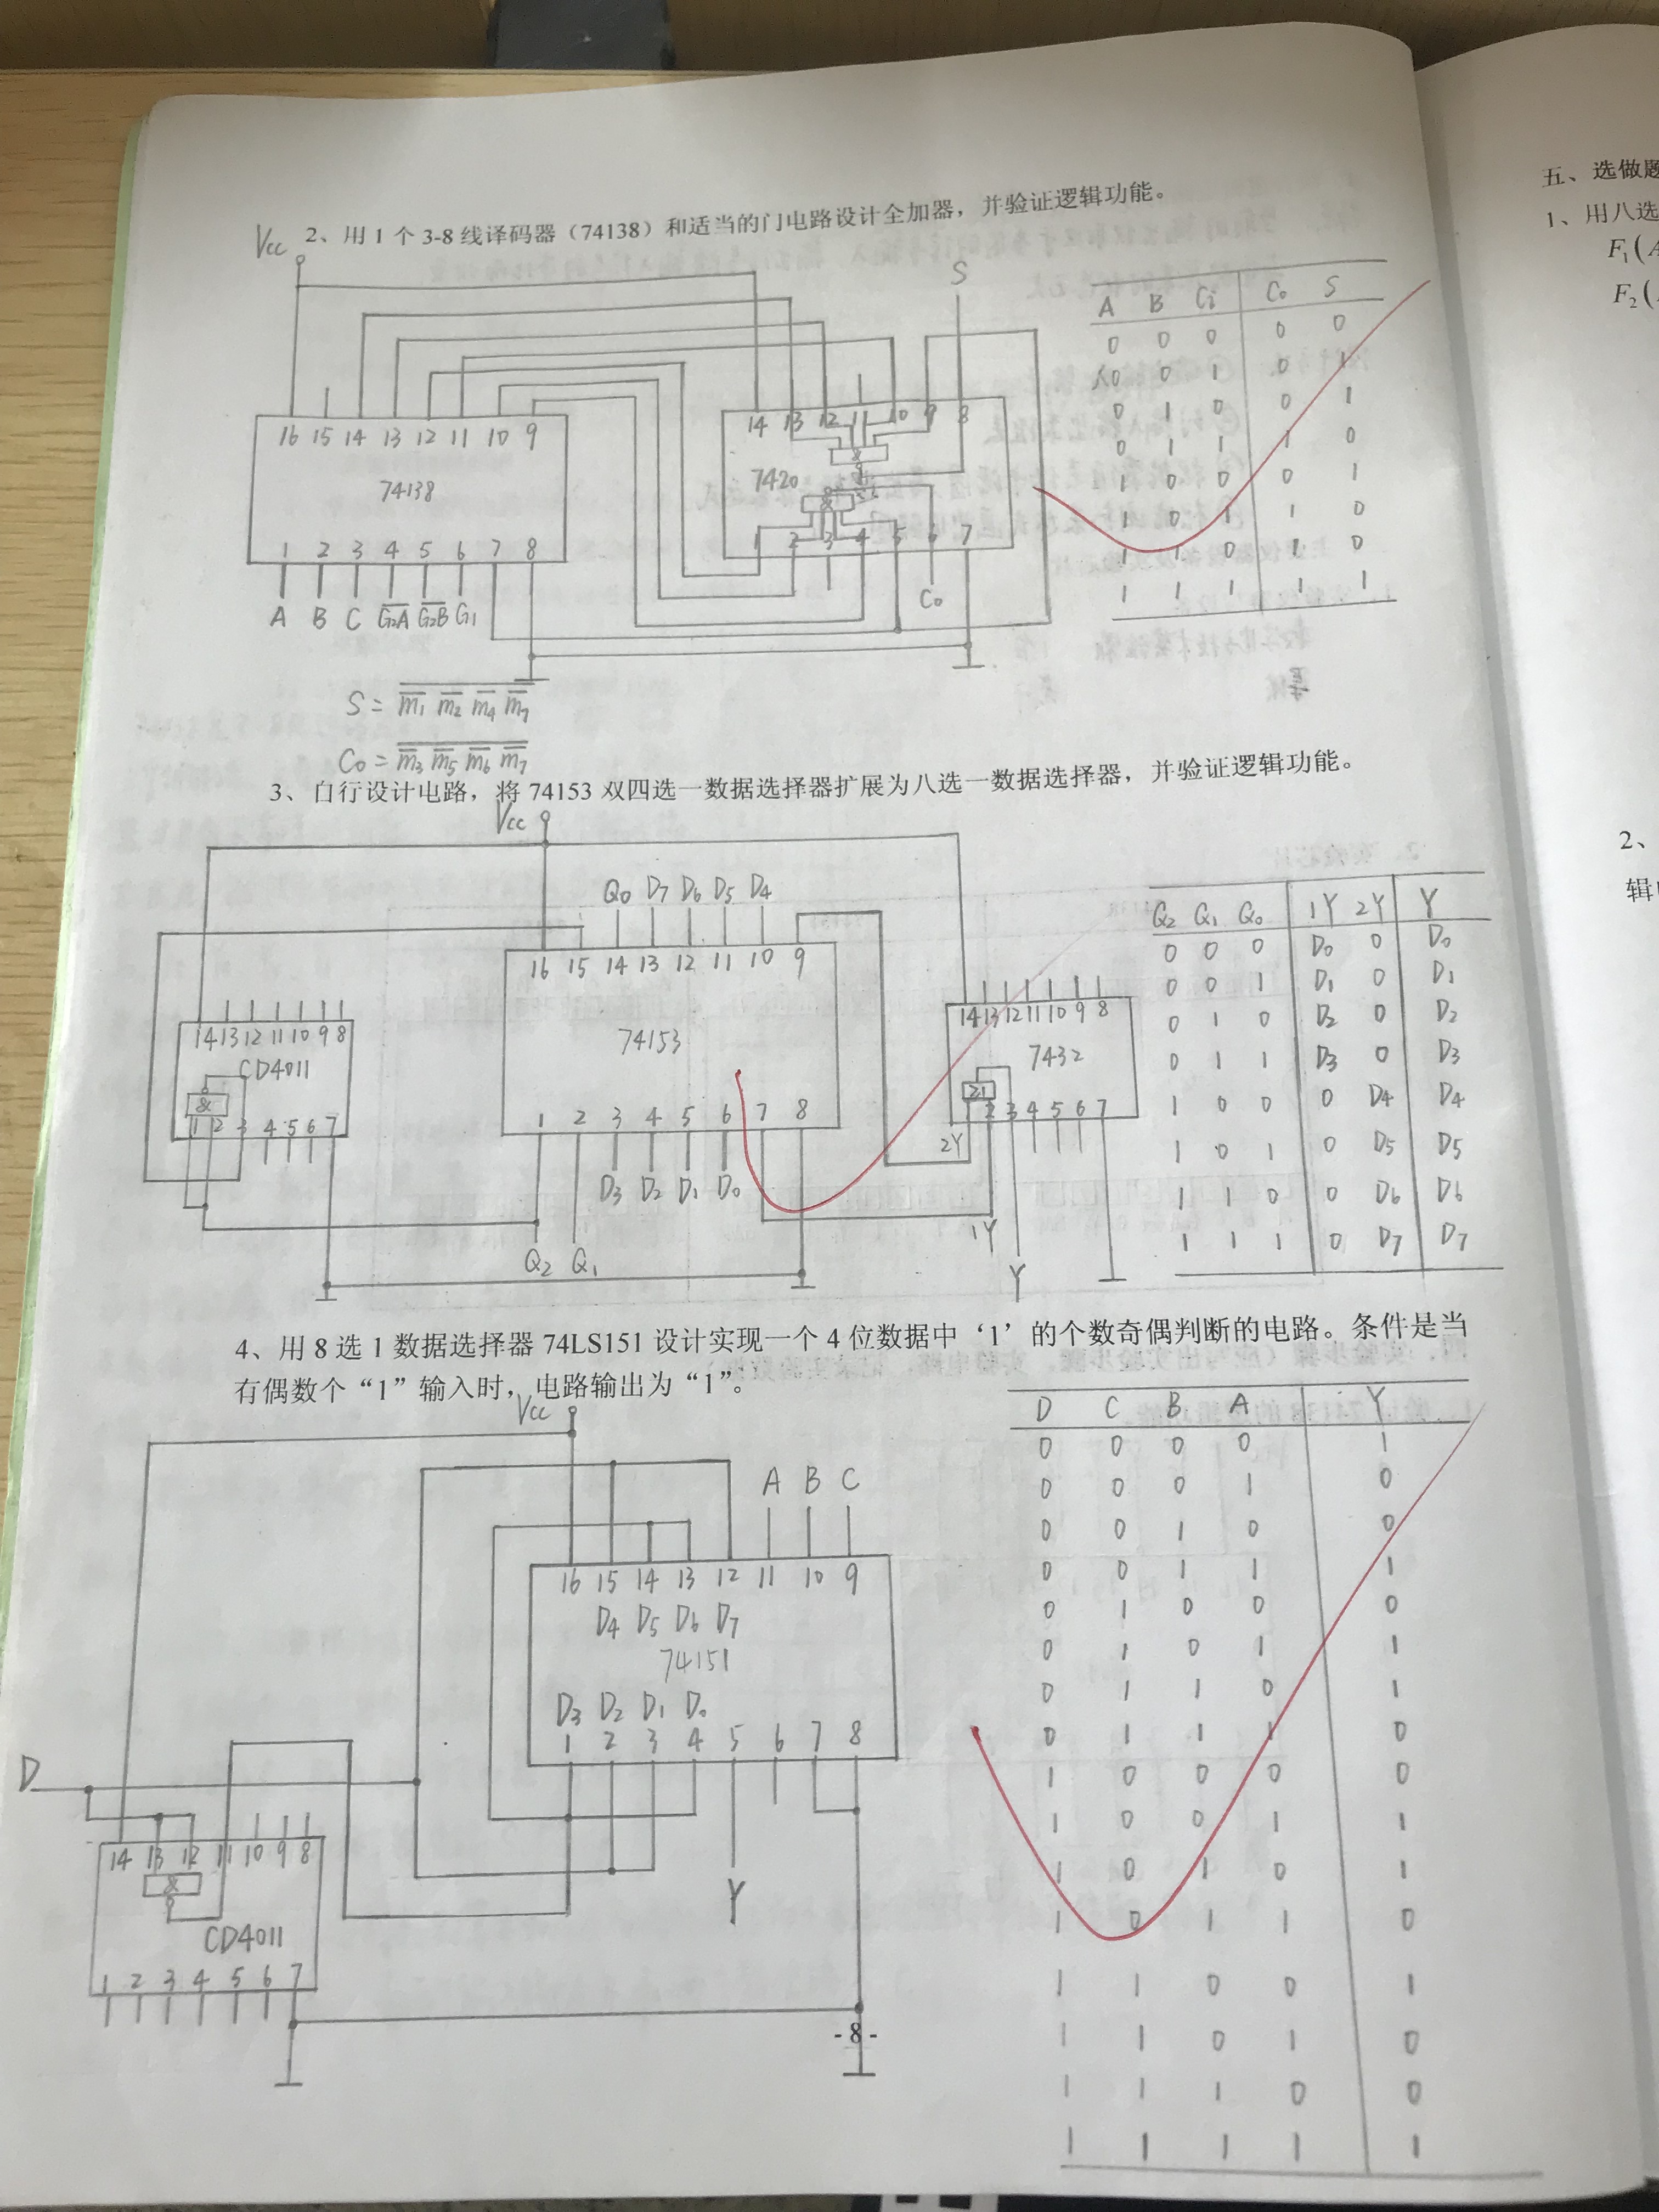 2、用 1 个 3-8 线译码器（74138）和适当的门电路设计全加器，并验证逻辑功能。
Vcc
S
16 15 14 13 12 11 10 9
74138
1 2 3 4 5 6 7 8
A B C G̅2̅A̅ G̅2̅B̅ G1
14 13 12 11 10 9 8
&
7420
&
1 2 3 4 5 6 7
Co
A B Ci Co S
0 0 0 0 0
0 0 1 0 1
0 1 0 0 1
0 1 1 1 0
1 0 0 0 1
1 0 1 1 0
1 1 0 1 0
1 1 1 1 1
S = \overline{\overline{m_1} \overline{m_2} \overline{m_4} \overline{m_7}}
Co = \overline{\overline{m_3} \overline{m_5} \overline{m_6} \overline{m_7}}
3、自行设计电路，将 74153 双四选一数据选择器扩展为八选一数据选择器，并验证逻辑功能。
Vcc
Q0 D7 D6 D5 D4
16 15 14 13 12 11 10 9
74153
1 2 3 4 5 6 7 8
D3 D2 D1 D0
Q2 Q1
14 13 12 11 10 9 8
CD4011
&
1 2 3 4 5 6 7
14 13 12 11 10 9 8
7432
≥1
2 3 4 5 6 7
2Y
1Y
Y
Q2 Q1 Q0 1Y 2Y Y
0 0 0 D0 0 D0
0 0 1 D1 0 D1
0 1 0 D2 0 D2
0 1 1 D3 0 D3
1 0 0 0 D4 D4
1 0 1 0 D5 D5
1 1 0 0 D6 D6
1 1 1 0 D7 D7
4、用 8 选 1 数据选择器 74LS151 设计实现一个 4 位数据中‘1’的个数奇偶判断的电路。条件是当
有偶数个“1”输入时，电路输出为“1”。
Vcc
A B C
16 15 14 13 12 11 10 9
D4 D5 D6 D7
74151
D3 D2 D1 D0
1 2 3 4 5 6 7 8
Y
D
14 13 12 11 10 9 8
&
CD4011
1 2 3 4 5 6 7
D C B A Y
0 0 0 0 1
0 0 0 1 0
0 0 1 0 0
0 0 1 1 1
0 1 0 0 0
0 1 0 1 1
0 1 1 0 1
0 1 1 1 0
1 0 0 0 0
1 0 0 1 1
1 0 1 0 1
1 0 1 1 0
1 1 0 0 1
1 1 0 1 0
1 1 1 0 0
1 1 1 1 1
- 8 -
五、选做题
1、用八选
F1(A
F2(
2、
辑